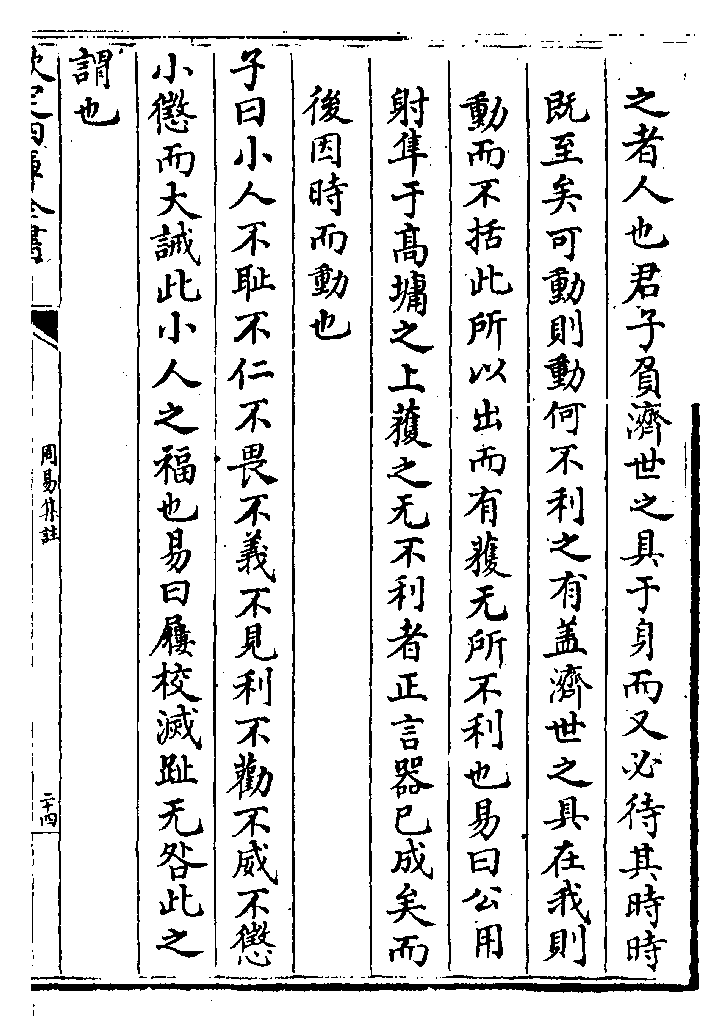 之者人也君子負濟世之具于身而又必待其時時
既至矣可動則動何不利之有盖濟世之具在我則
動而不括此所以出而有獲无所不利也易曰公用
射隼于高墉之上獲之无不利者正言器已成矣而
後因時而動也
子曰小人不耻不仁不畏不義不見利不勸不威不懲
小懲而大誡此小人之福也易曰屨校滅趾无咎此之
謂也
欽定四庫全書
周易集註
二十四